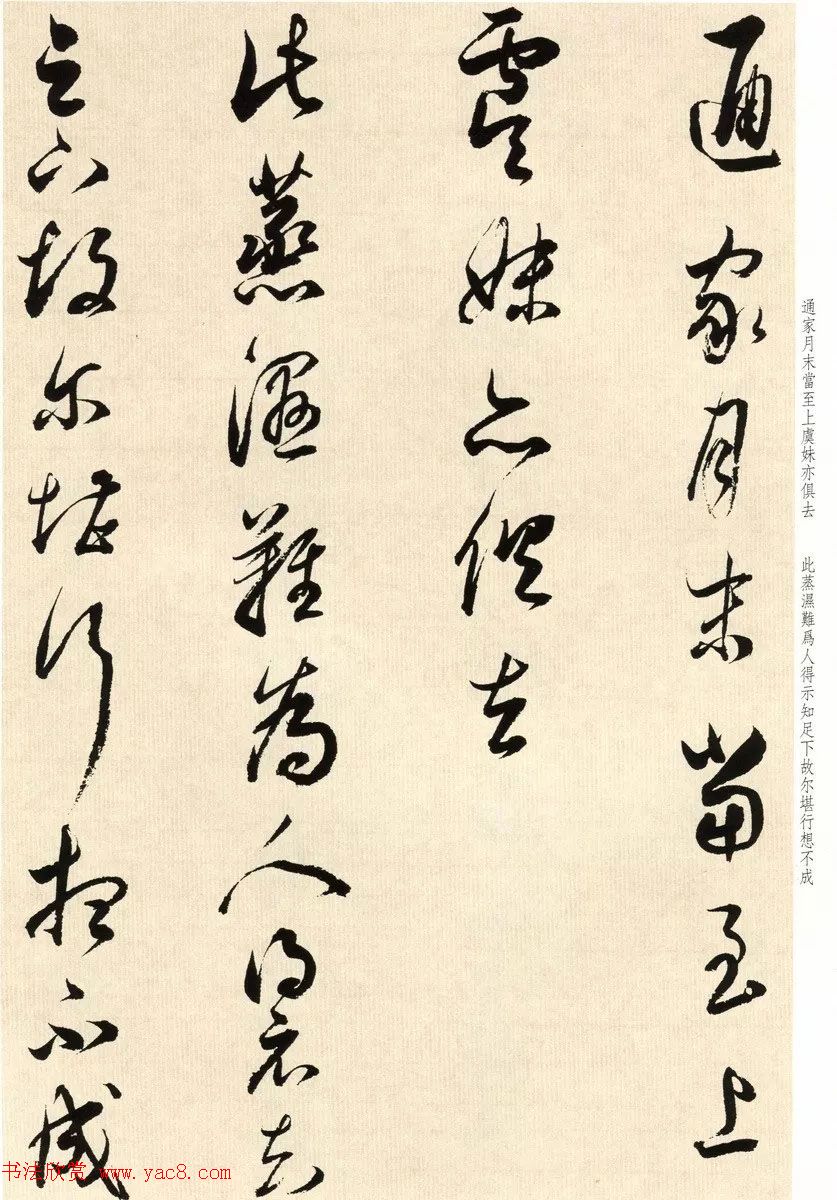 通家月末當至上
虞妹亦俱去
此蒸濕難爲人得示知
足下故尔堪行想不成
通家月末當至上虞妹亦俱去
此蒸濕難爲人得示知足下故尔堪行想不成
书法欣赏 www.yac8.com